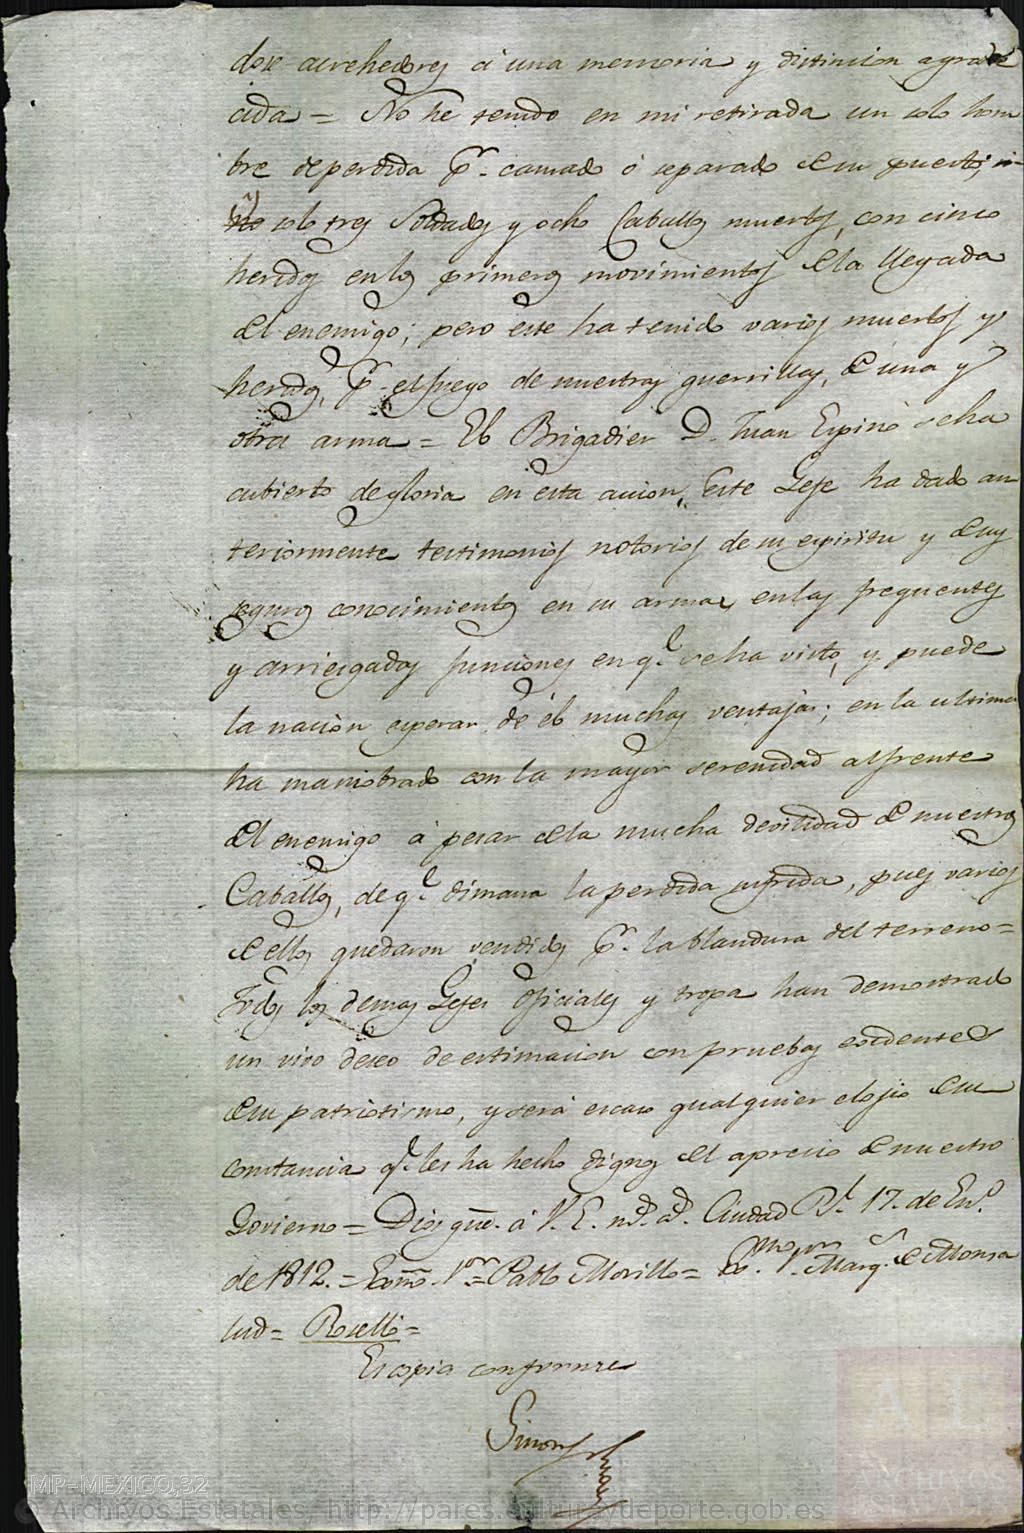 dose acrehedores á una memoria y distincion agrade
cida = No he tenido en mi retirada un solo hom
bre de perdida pr. cansado ó separado de su puerto, si
no solo tres Soldados y ocho Caballos muertos, con cinco
heridos en los primeros movimientos de la llegada
del enemigo; pero este ha tenido varios muertos y
heridos, pr. el fuego de nuestras guerrillas, de una y
otra arma = El Brigadier D. Juan Espino se ha
cubierto de gloria en esta accion, Este Gefe ha dado an
teriormente testimonios notorios de su espiritu y de sus
seguros conocimientos en su arma, en las frequentes
y arriesgadas funciones en ql. se ha visto, y puede
la nacion esperar de él muchas ventajas; en la ultima
ha maniobrado con la mayor serenidad al frente
del enemigo á pesar de la mucha devilidad de nuestros
Caballos, de ql. dimana la perdida sufrida, pues varios
de ellos quedaron rendidos pr. la blandura del terreno =
Todos los demas Gefes Oficiales y tropa han demostrado
un vivo deseo de estimacion con pruebas evidentes
de su patriotismo, y será escaso qualquier elojio de su
constancia ql. les ha hecho dignos del aprecio de nuestro
Govierno = Dios gue. á V. E. ms. as. Ciudad Rl. 17. de Eno.
de 1812. = Exmo. Sor. = Pablo Morillo = Exmo. Sor. Marqs. de Monsa
lud = Roselló =
Es copia conforme
Simon
MP-MEXICO,32
© Archivos Estatales, http://pares.culturaydeporte.gob.es